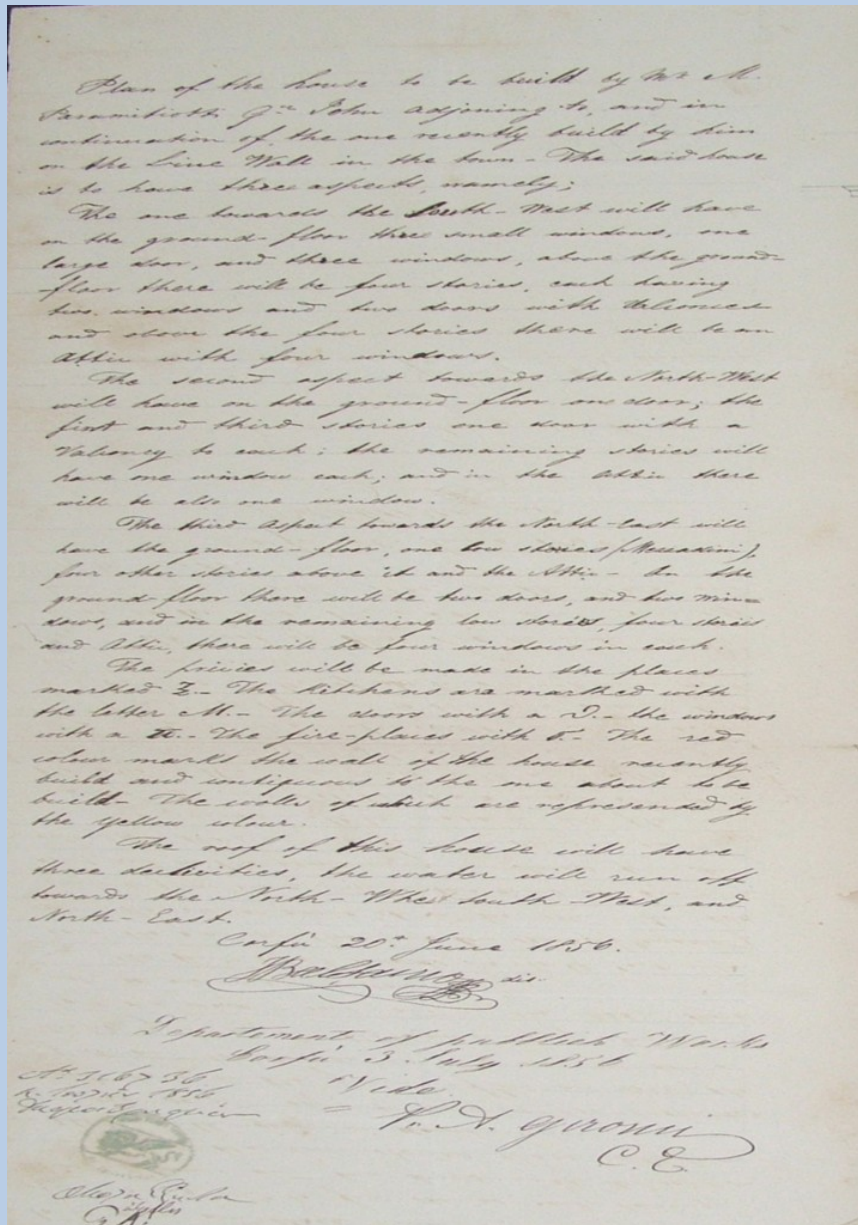 Plan of the house to be built by Mr M.
Paramithiotti Qm John adjoning to, and in
continuation of, the one recently build by him
on the Line Wall in the town - The said house
is to have three aspects, namely;
The one towards the South-West will have
on the ground-floor three small windows, one
large door, and three windows, above the ground-
-floor there will be four stories, each having
two windows and two doors with Valconies
and above the four stories there will be an
Attic with four windows.
The second aspect towards the North-West
will have on the ground-floor one door; the
first and third stories one door with a
Valconcy to each; the remaining stories will
have one window each; and in the Attic there
will be also one window.
The third Aspect towards the North-East will
have the ground-floor, one low stories (Mezzadini),
four other stories above it and the Attic - On the
ground floor there will be two doors, and two win=
dows, and in the remaining low stories, four stories
and Attic, there will be four windows in each.
The privies will be made in the places
marked Z. - The Kitchens are marked with
the letter M. - The doors with a - the windows
with a π. - The fire-places with - The red
colour marks the wall of the house recently
build and contiguous to the one about to be
build - The walls of which are represended by
the yellow colour.
The roof of this house will have
three declivities, the water will run off
towards the North- South-West, and
North-East.
Corfù 20th June 1856.
Departement of pubblick Works
Corfù 3 July 1856
Vide.
A. Gironci
C. E.
1856